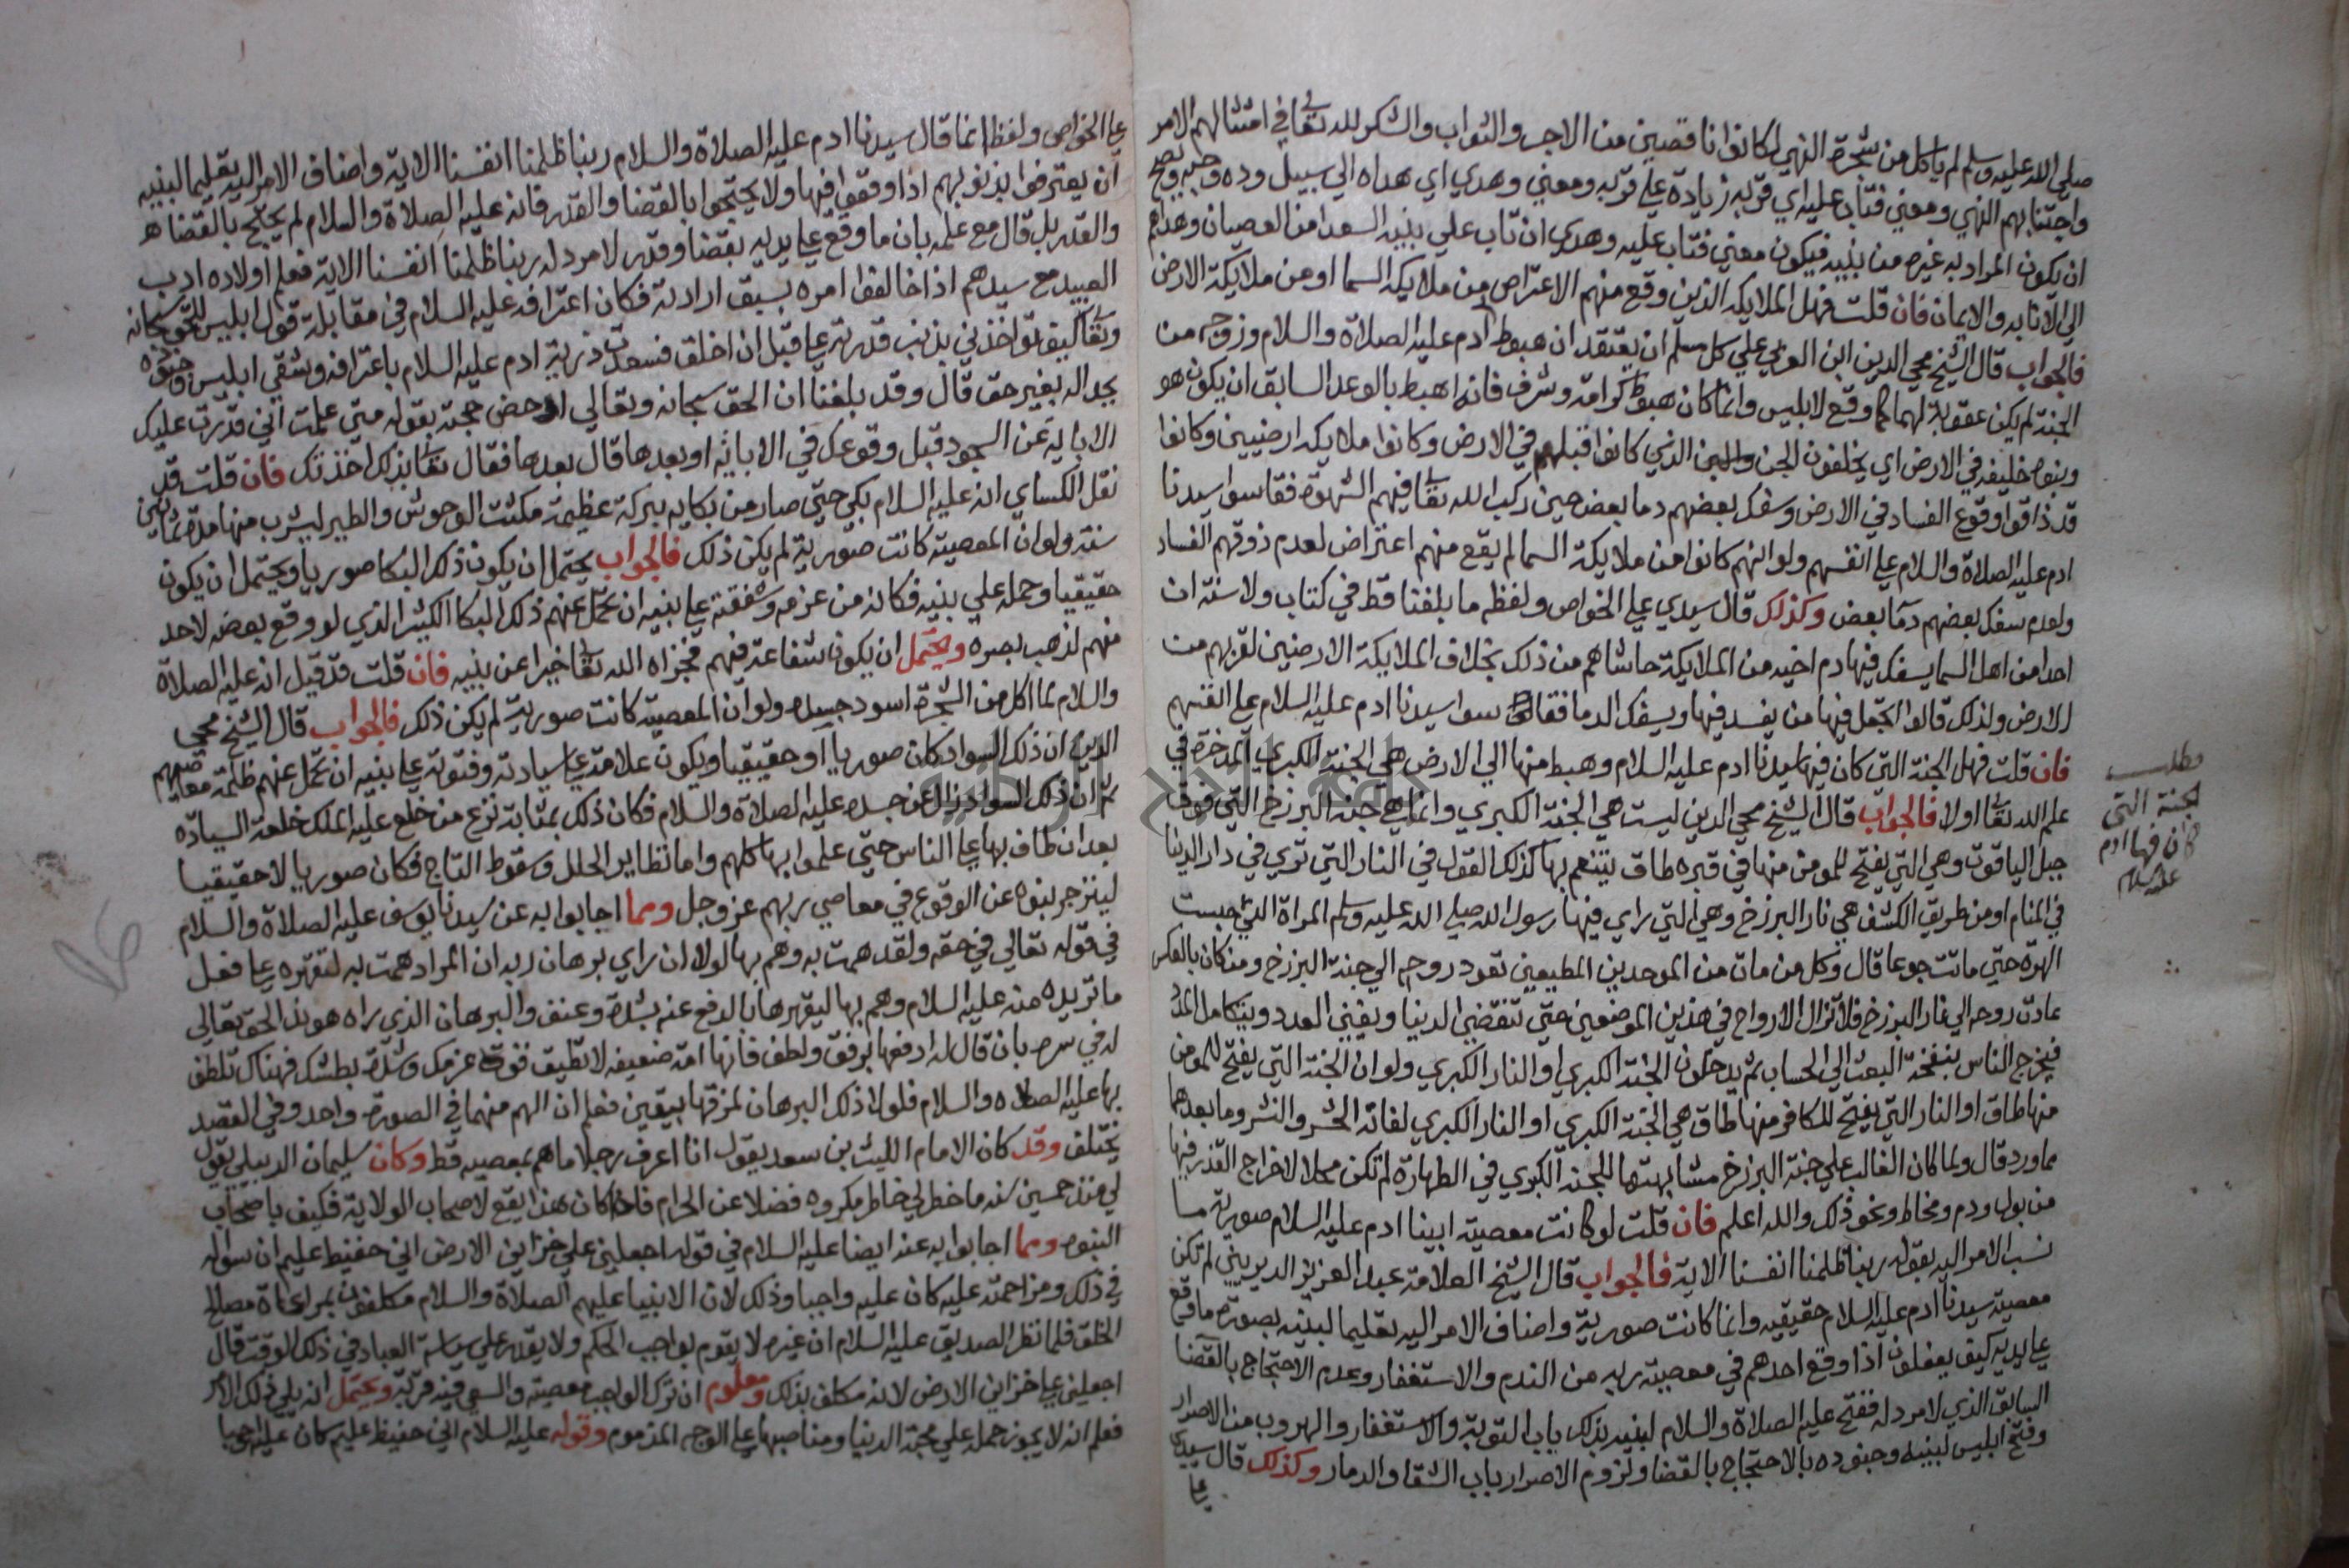 صلي الله عليه وسلم لم ياكل من شجرة النهي لكانوا ناقصين من الاجر والثواب والشكر لله تعالي في امتثالهم الامر
واجتنابهم النهي ومعني فتاب عليه اي قربه زيادة علي قربه ومعني وهدي اي هداه الي سبيل وده وحبه ويصح
ان يكون المراد به غيره من بنيه فيكون معني فتاب عليه وهدي ان تاب علي بنيه السعدا من العصيان وهداهم
الي الانابه والايمان فان قلت فهل الملايكه الذين وقع منهم الاعتراض من ملايكة السما او من ملايكة الارض
فالجواب قال الشيخ محي الدين ابن العربي علي كل مسلم ان يعتقد ان هبوط آدم عليه الصلاة والسلام وزوجه من
الجنة لم يكن عقوبة لهما كما وقع لابليس وانما كان هبوط كرامة وشرف فانه اهبط بالوعد السابق ان يكون هو
وبنوه خليفه في الارض اي يخلفون الجن والبن الذين كانوا قبلهم في الارض وكانوا ملايكه ارضيين وكانوا
قد ذاقوا وقوع الفساد في الارض وسفك بعضهم دما بعض حين ركب الله تعالي فيهم الشهوة فقاسوا سيدنا
ادم عليه الصلاة والسلام علي انفسهم ولو انهم كانوا من ملايكة السما لم يقع منهم اعتراض لعدم ذوقهم الفساد
ولعدم سفك بعضهم دما بعض وكذلك قال سيدي علي الخواص ولفظه ما بلغنا قط في كتاب ولا سنة ان
احدا من اهل السما يسفك فيها دم اخيه من الملايكة حاشاهم من ذلك بخلاف الملايكة الارضين لقربهم من
الارض ولذلك قالوا اتجعل فيها من يفسد فيها ويسفك الدما فقاسوا سيدنا ادم عليه السلام علي انفسهم
فان قلت فهل الجنة التي كان فيها سيدنا ادم عليه السلام وهبط منها الي الارض هي الجنة الكبري المدخرة في
علم الله تعالي اولا فالجواب قال الشيخ محي الدين ليست هي الجنة الكبري وانما هي جنة البرزخ التي فوق
جبل الياقوت وهي التي يفتح للمومن منها في قبره طاق يتنعم بها كذلك القول في النار التي تري في دار الدنيا
في المنام او من طريق الكشف هي نار البرزخ وهي التي راي فيها رسول الله صلي الله عليه وسلم المراة التي حبست
الهرة حتي ماتت جوعا قال وكل من مات من الموحدين المطيعين تعود روحه الي جنة البرزخ ومن كان بالعكس
عادت روحه الي نار البرزخ فلا تزال الارواح في هذين الموضعين حتي تنقضي الدنيا ويفني العدد ويتكامل المدد
فيخرج الناس بنفخة البعث الي الحساب ثم يدخلون الجنة الكبري او النار الكبري ولو ان الجنة التي يفتح للمومن
منها طاق او النار التي يفتح للكافر منها طاق هي الجنة الكبري او النار الكبري لفاته الحشر والنشر وما بعدهما
مما ورد قال ولما كان الغالب علي جنة البرزخ مشابهتها للجنة الكبري في الطهارة لم تكن محلا لاخراج القذر فيها
من بول ودم ومخاط ونحو ذلك والله اعلم فان قلت لو كانت معصية ابينا ادم عليه السلام صورية ما
نسب الامر اليه بقوله ربنا ظلمنا انفسنا الاية فالجواب قال الشيخ العلامة عبد العزيز الديريني لم تكن
معصية سيدنا ادم عليه السلام حقيقيه وانما كانت صورية واضاف الامر اليه تعليما لبنيه بصورة ما وقع
علي يديه كيف يفعلون اذا وقع احدهم في معصية ربه من الندم والاستغفار وعدم الاحتجاج بالقضا
السابق الذي لا مرد له ففتح عليه الصلاة والسلام لبنيه بذلك باب التوبة والاستغفار والهروب من الاصرار
وفتح ابليس لبنيه وجنوده بالاحتجاج بالقضا ولزوم الاصرار باب الشقا والدمار وكذلك قال سيدي
علي
مطلب
الجنة التي
كان فيها ادم
عليه السلام
علي الخواص ولفظ انما قال سيدنا ادم عليه الصلاة والسلام ربنا ظلمنا انفسنا الاية واضاف الامر اليه تعليما لبنيه
ان يعترفوا بذنوبهم اذا وقعوا فيها ولا يحتجوا بالقضا والقدر فانه عليه الصلاة والسلام لم يحتج بالقضا
والقدر بل قال مع علمه بان ما وقع علي يديه بقضا وقدر لا مرد له ربنا ظلمنا انفسنا الاية فعلم اولاده ادب
العبيد مع سيدهم اذا خالفوا امره بسبق ارادته فكان اعترافه عليه السلام في مقابلة قول ابليس للحق سبحانه
وتعالي كيف تواخذني بذنب قدرته علي قبل ان اخلق فسعدت ذرية ادم عليه السلام باعترافه وشقي ابليس وجنوده
بجداله بغير حق قال وقد بلغنا ان الحق سبحانه وتعالي ادحض حجته بقوله متي علمت اني قدرت عليك
الاباية عن السجود قبل وقوعك في الاباية او بعدها قال بعدها فقال تعالي بذلك اخذتك فان قلت قد
نقل الكساي انه عليه السلام بكي حتي صار من بكايه بركة عظيمة مكثت الوحوش والطير ليشرب منها مدة ثمانين
سنة ولو ان المعصية كانت صورية لم يكن ذلك فالجواب يحتمل ان يكون ذلك البكا صوريا ويحتمل ان يكون
حقيقيا وحمله علي بنيه فكانه من عزمه وشفقته علي بنيه ان تحمل عنهم ذلك البكا الكثير الذي لو وقع بعضه لاحد
منهم لذهب بصره ويحتمل ان يكون شفاعة فيهم فجزاه الله تعالي خيرا عن بنيه فان قلت قد قيل انه عليه الصلاة
والسلام لما اكل من الشجرة اسود جسده ولو ان المعصية كانت صورية لم يكن ذلك فالجواب قال الشيخ محي
الدين ان ذلك السواد كان صوريا او حقيقيا ويكون علامة علي سيادته وفتوته علي بنيه ان تحمل عنهم ظلمة معاصيهم
ثم ان ذلك السواد نزل عن جسده عليه الصلاة والسلام فكان ذلك بمثابة نزع من خلع عليه الملك خلعة السياده
بعد ان طاف بها علي الناس حتي علموا بها كلهم واما تطاير الحلل وسقوط التاج فكان صوريا لا حقيقيا
لينزجر بنوه عن الوقوع في معاصي ربهم عز وجل ومما اجابوا به عن سيدنا يوسف عليه الصلاة والسلام
في قوله تعالي في حقه ولقد همت به وهم بها لولا ان راي برهان ربه ان المراد همت به لتقهره علي فعل
ما تريده منه عليه السلام وهم بها ليقهرها بالدفع عنه بشدة وعنف والبرهان الذي راه هو نداء الحق تعالي
له في سره بان قال له ادفعها برفق ولطف فانها امة ضعيفه لا تطيق قوة عزمك وشدة بطشك فهناك تلطف
بها عليه الصلاه والسلام فلولا ذلك البرهان لمزقها بيقين فعلم ان الهم منهما في الصورة واحد وفي القصد
يختلف وقد كان الامام الليث بن سعد يقول انا اعرف رجلا ما هم بمعصيه قط وكان سليمان الدبيلي يقول
لي منذ خمسين سنه ما خطر لي خاطر مكروه فضلا عن الحرام فاذا كان هذا يقع لاصحاب الولاية فكيف باصحاب
النبوه ومما اجابوا به عنه ايضا عليه السلام في قوله اجعلني علي خزاين الارض اني حفيظ عليم ان سواله
في ذلك ومزاحمته عليه كان عليه واجبا وذلك لان الانبيا عليهم الصلاة والسلام مكلفون بمراعاة مصالح
الخلق فلما نظر الصديق عليه السلام ان غيره لا يقوم بواجب الحكم ولا يقدر علي سياسة العباد في ذلك الوقت قال
اجعلني علي خزاين الارض لانه مكلف بذلك ومعلوم ان ترك الواجب معصية والسعي فيه قربة ويحتمل انه يلي ذلك الامر
فعلم انه لا يجوز حمله علي محبة الدنيا ومناصبها علي الوجه المذموم وقوله عليه السلام اني حفيظ عليم كان عليه واجبا